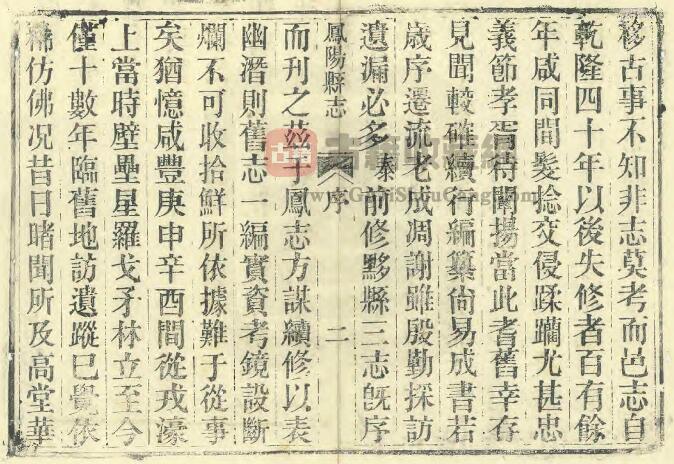 移古事不知非志莫考而邑志自
乾隆四十年以後失修者百有餘
年咸同間髮捻交侵蹂躪尤甚忠
義節孝胥待闡揚當此耆舊幸存
見聞較確續行編纂尙易成書若
歲序遷流老成凋謝雖殷勤採訪
遺漏必多泰前修黟縣三志旣序
鳳陽縣志
序
二
而刊之茲于鳳志方謀續修以表
幽潛則舊志一編實資考鏡設斷
爛不可收拾鮮所依據難于從事
矣猶憶咸豐庚申辛酉間從戎濠
上當時壁壘星羅戈矛林立至今
僅十數年臨舊地訪遺蹤已覺依
稀仿佛况昔日睹聞所及高堂華
古籍
www.GujiShouCang.com